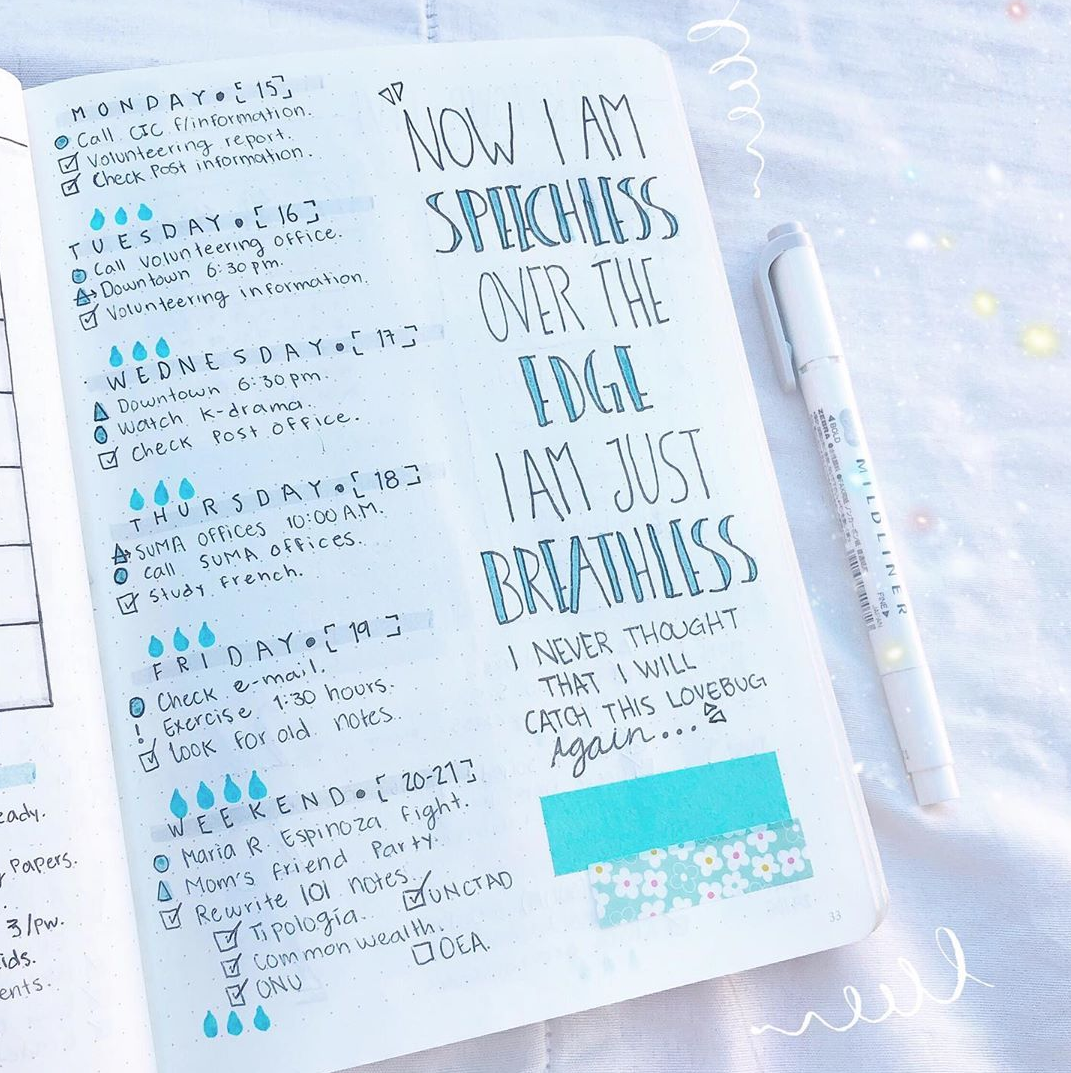 MONDAY • [15]
Call CJC f/information.
Volunteering report.
Check Post information.
TUESDAY • [16]
Call Volunteering office.
Downtown 6:30 pm.
Volunteering information.
WEDNESDAY • [17]
Downtown 6:30 pm.
Watch K-drama.
Check Post office.
THURSDAY • [18]
SUMA offices 10:00 A.M.
Call SUMA offices.
Study French.
FRIDAY • [19]
Check e-mail.
! Exercise 1:30 hours.
Look for old notes.
WEEKEND • [20-21]
Maria R. Espinoza Fight.
Mom's friend Party.
Rewrite 101 notes.
Tipología.
UNCTAD
Common wealth.
OEA.
ONU
"NOW I AM
SPEECHLESS
OVER THE
EDGE
I AM JUST
BREATHLESS
I NEVER THOUGHT
THAT I WILL
CATCH THIS LOVEBUG
Again..."
33
eady.
Papers.
3/pw.
ids.
ents.
ZEBRA
MILDLINER
FINE
JAPAN
BOLD